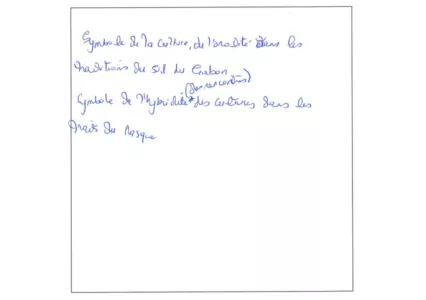 Symbole de la culture, de l'oralité dans les
traditions du sud du Gabon
(des rencontres)
Symbole de l'hybridité* des cultures dans les
traits du masque